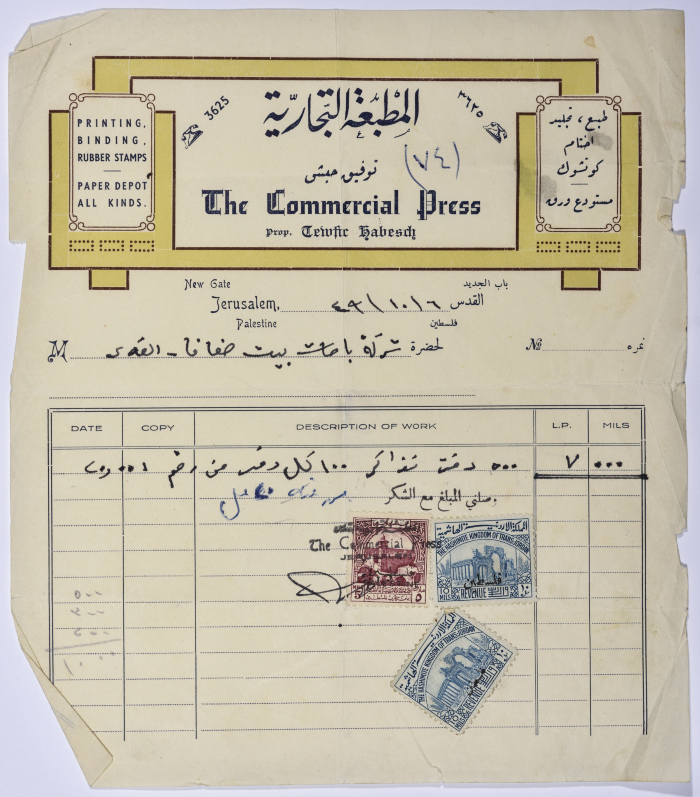 3625
المطبعة التجارية
٣٦٢٥
PRINTING,
BINDING,
RUBBER STAMPS
PAPER DEPOT
ALL KINDS.
(٧٤)
توفيق حبش
The Commercial Press
Prop. Tewfic Habesch
طبع، تجليد
اختام
كوتشوك
مستودع ورق
New Gate
باب الجديد
Jerusalem, ٤٩/١٠/٦ القدس
Palestine
فلسطين
M لحضرة شركة باصات بيت صفافا - القدس
№ نمره
DATE COPY DESCRIPTION OF WORK L.P. MILS
٥٠٠ دفتر تذاكر ١٠٠ كل دفتر من رقم ٧ ٠٠٠
وصلني المبلغ مع الشكر
The Commercial Press
المملكة الاردنية الهاشمية
THE HASHEMITE KINGDOM OF TRANS-JORDAN
فلسطين
10 MILS REVENUE
٥
المملكة الاردنية الهاشمية
THE HASHEMITE KINGDOM OF TRANS-JORDAN
فلسطين
10 MILS REVENUE